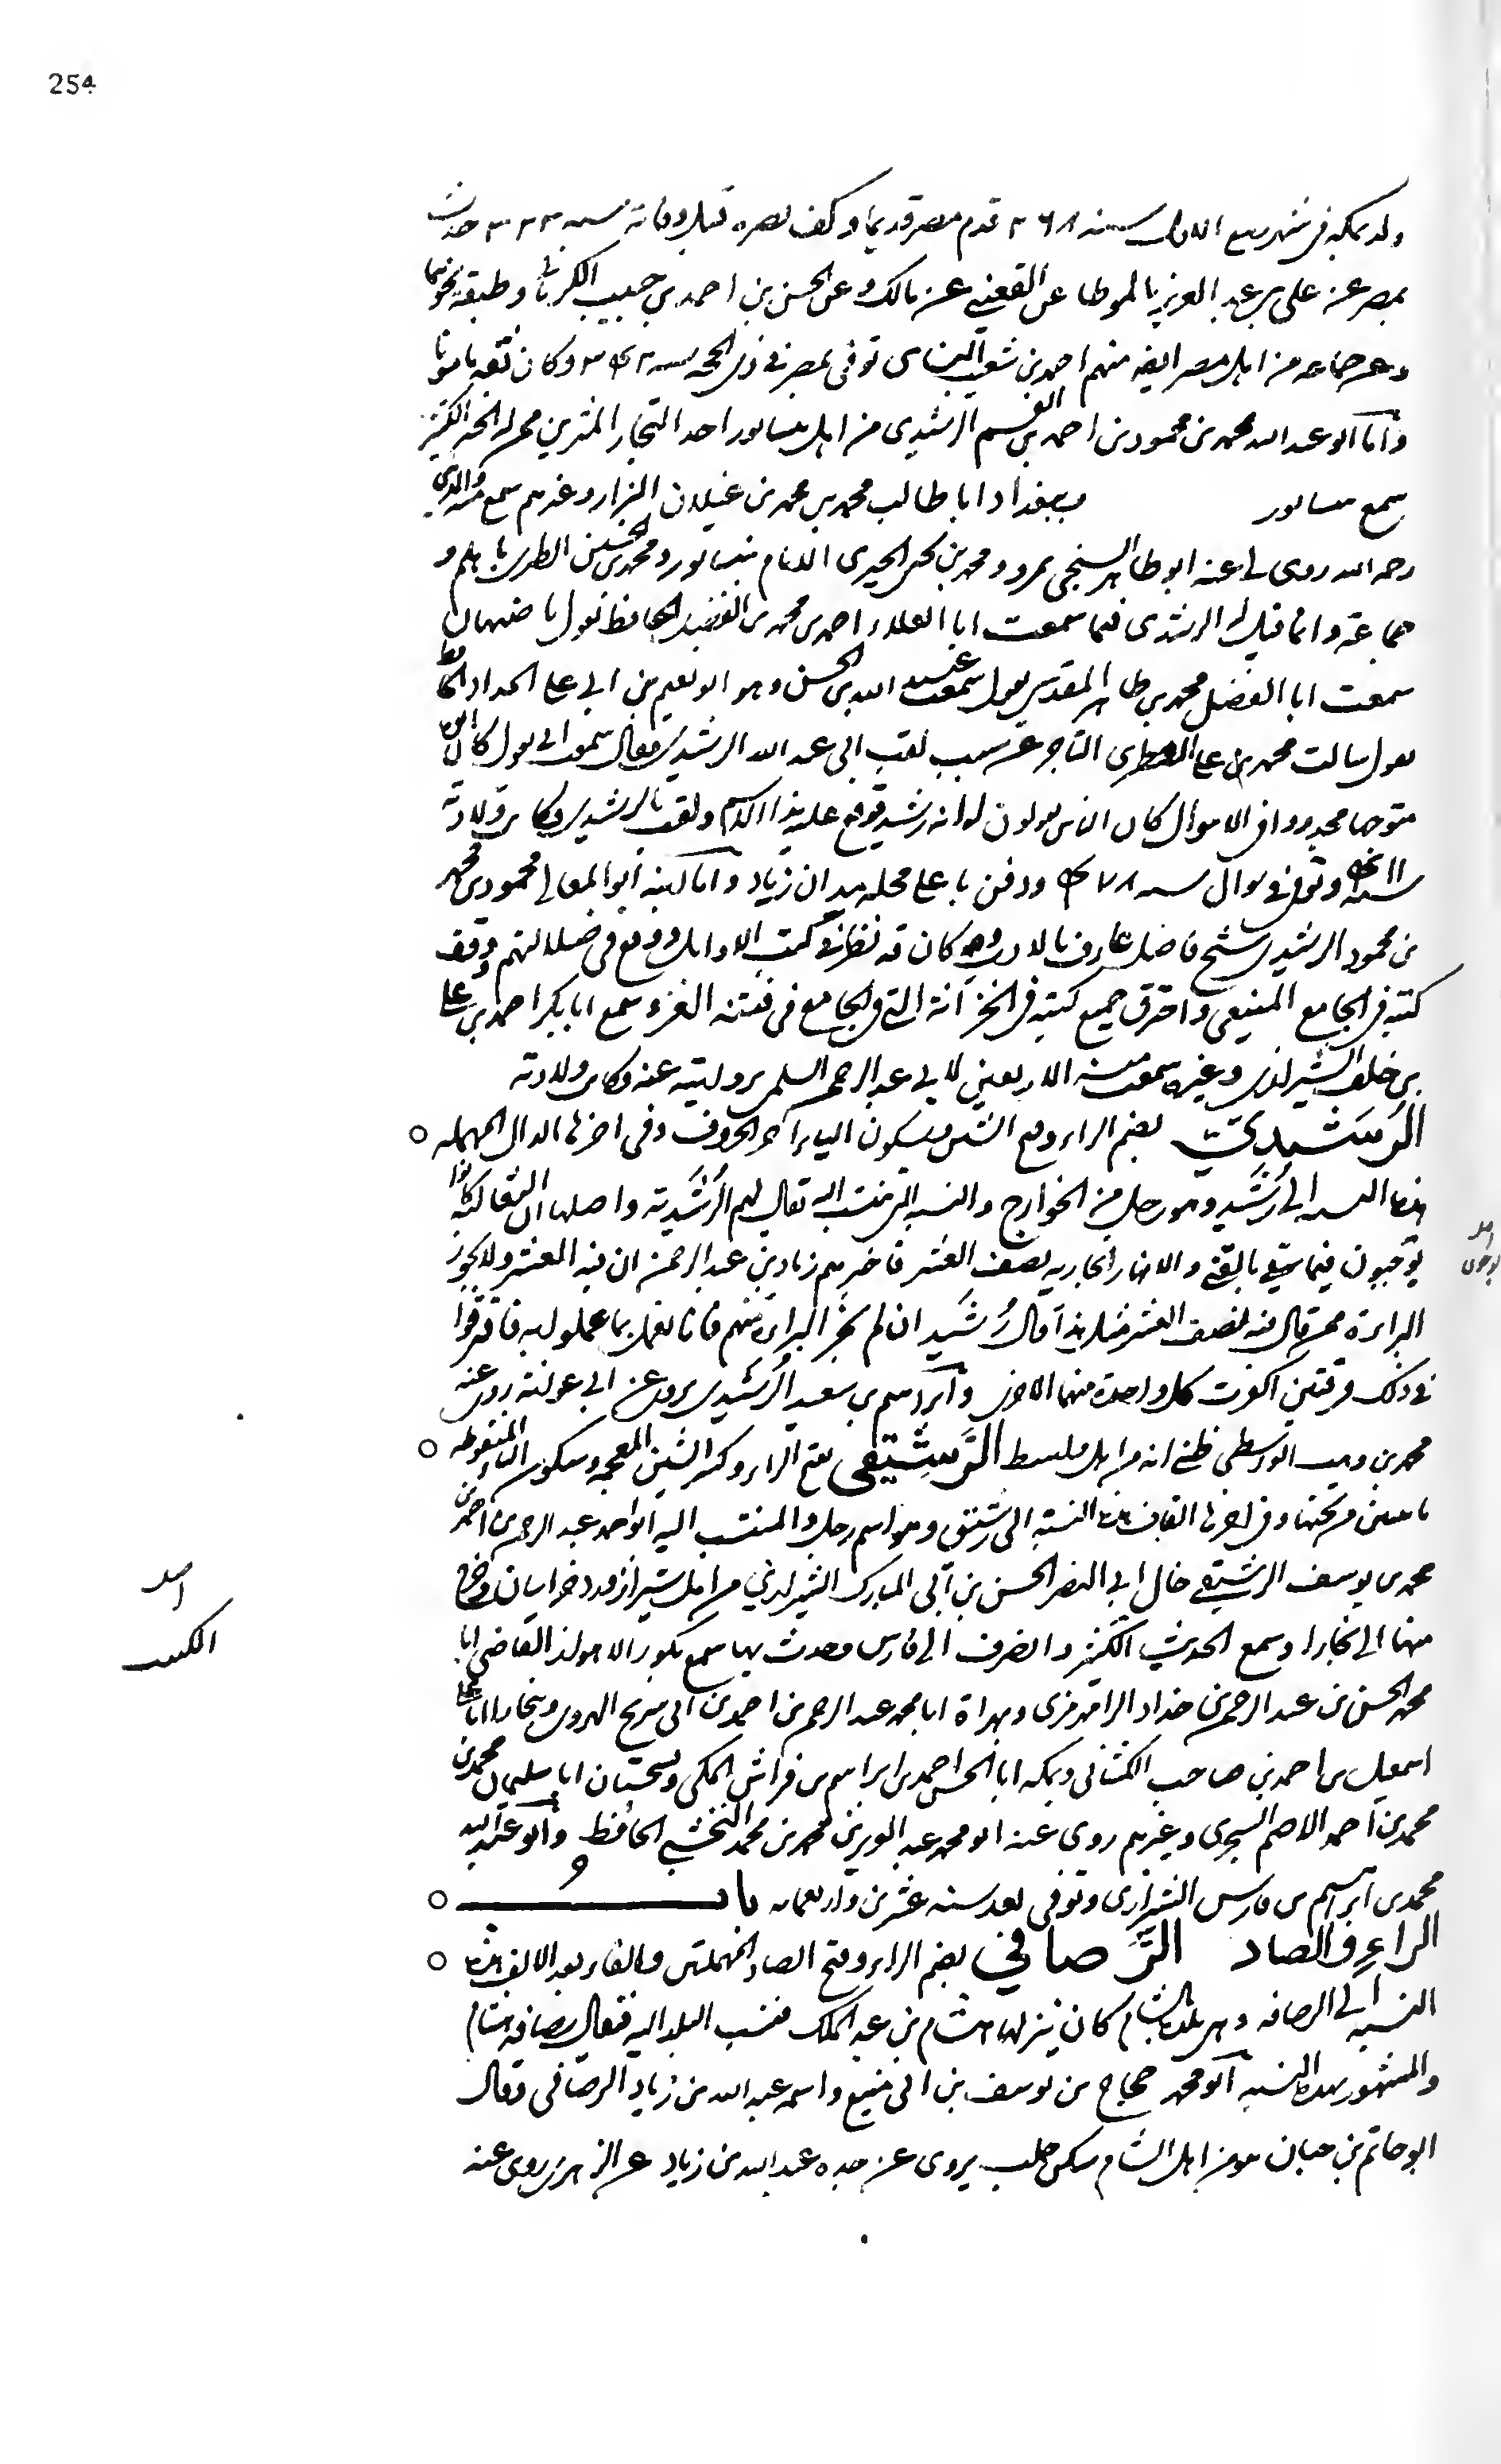 254
ولد بمكة في شهر ربيع الاول سنة ٢٦٨ قدم مصر قديما وكف بصره قبل وفاته سنة ٣٣٣ حدث
بمصر عن علي بن عبد العزيز بالموطا عن القعنبي عن مالك وعن الحسن بن احمد بن حبيب الكرماني وطبقة نحوهما
وعن جماعة من اهل مصر ايضا منهم احمد بن شعيب النساى توفى بمصر في ذى الحجة سنة وكان ثقة مامونا
واما ابو عبد الله محمد بن محمود بن احمد بن القسم الرشيدى من اهل نيسابور احد التجار المثرين
سمع بنيسابور وببغداد ابا طالب محمد بن محمد بن غيلان البزاز وغيرهم سمع منه والدى
رحمه الله روى لي عنه ابو طاهر السنجي بمرو ومحمد بن يحيى الحيرى الامام بنيسابور ومحمد بن الحسين الطبرى بامل و
جماعة وانما قيل له الرشيدى فيما سمعت ابا العلاء احمد بن محمد بن الفضل الحافظ يقول باصبهان
سمعت ابا الفضل محمد بن طاهر المقدسي يقول سمعت عبيد الله بن الحسن وهو ابو نعيم بن ابي علي الحداد الحافظ
يقول سالت محمد بن علي التاجر عن سبب لقب ابى عبد الله الرشيدي فقال سمعت ابي يقول كان
وافر الاموال كان الناس يقولون له انه رشيد فوقع عليه هذا الاسم ولقب بالرشيدي وكان ولادته
سنة وتوفى في شوال سنة ودفن باعلى محلة ميدان زياد واما ابنه ابو المعالي محمود بن محمد
بن محمود الرشيدي شيخ فاضل عارف بالادب كان قد نظر في كتب الاوايل ووقع في ضلالتهم وقف
كتبه في الجامع المنيعي واحترق جميع كتبه في الخزانة التي في الجامع في فتنة الغز سمع ابا بكر احمد بن علي
بن خلف الشيرازي وغيره سمعت منه الاربعين لابي عبد الرحمن السلمي بروايته عنه وكان ولادته
الرُشَيديّ بضم الراء وفتح الشين وسكون الياء اخر الحروف وفى اخرها الدال المهملة ○
هذه النسبة الى رُشَيد وهو رجل من الخوارج والنسبة التي تنتسب اليه تقال لهم الرُشَيدية واصلها ان الثعالبة كانوا
يوجبون فيما سقي بالقني والانهار الجارية نصف العشر فاخبرهم زياد بن عبد الرحمن ان فيه العشر ولا يجوز
البراءة ممن قال فيه نصف العشر قبل هذا فقال رُشَيد ان لم يجز البراءة منهم فانا نعمل بما عملوا به فافترقوا
في ذلك فرقتين اكفرت كل واحدة منهما الاخرى وابرهيم بن سعيد الرُشَيدي يروى عن ابي عوانة روى عنه
محمد بن وهب الواسطي ظني انه من اهل واسط الرَّشِيقي بفتح الراء وكسر الشين المعجمة وسكون الياء المنقوطة ○
باثنتين من تحتها وفي اخرها القاف هذه النسبة الى رشيق وهو اسم رجل والمنتسب اليه ابو احمد عبد الرحمن بن احمد بن
محمد بن يوسف الرشيقي خال ابي النصر الحسن بن ابى المبارك الشيرازي من اهل شيراز ورد خراسان وخرج
منها الى بخارا وسمع الحديث الكثير وانصرف الى فارس وحدث بها سمع بكور الاهواز القاضي ابا
محمد الحسن بن عبد الرحمن بن خلاد الرامهرمزى وبهراة ابا محمد عبد الرحمن بن احمد بن ابى شريح الهروى وببخارا ابا علي
اسمعيل بن احمد بن حاجب الكشانى وبمكة ابا الحسن احمد بن ابراهيم بن فراس المكي وبسجستان ابا سليمان محمد بن
محمد بن احمد الاصم السجزى وغيرهم روى عنه ابو محمد عبد العزيز بن محمد بن محمد النخشبي الحافظ وابو عبد الله
محمد بن ابرهيم بن فارس الشيرازى وتوفى بعد سنة عشرين واربعمائة باب ○
الراء والصاد الرُّصافي بضم الراء وفتح الصاد المهملتين والفاء بعد الالف هذه ○
النسبة الى الرصافة وهي بلدة بالشام كان ينزلها هشام بن عبد الملك فنسب البلد اليه فيقال رصافة هشام
والمشهور بهذه النسبة ابو محمد حجاج بن يوسف بن ابى منيع واسمه عبيد الله بن زياد الرصافى وقال
ابو حاتم بن حبان هو من اهل الشام سكن حلب يروى عن جده عبيد الله بن زياد عن الزهرى روى عنه